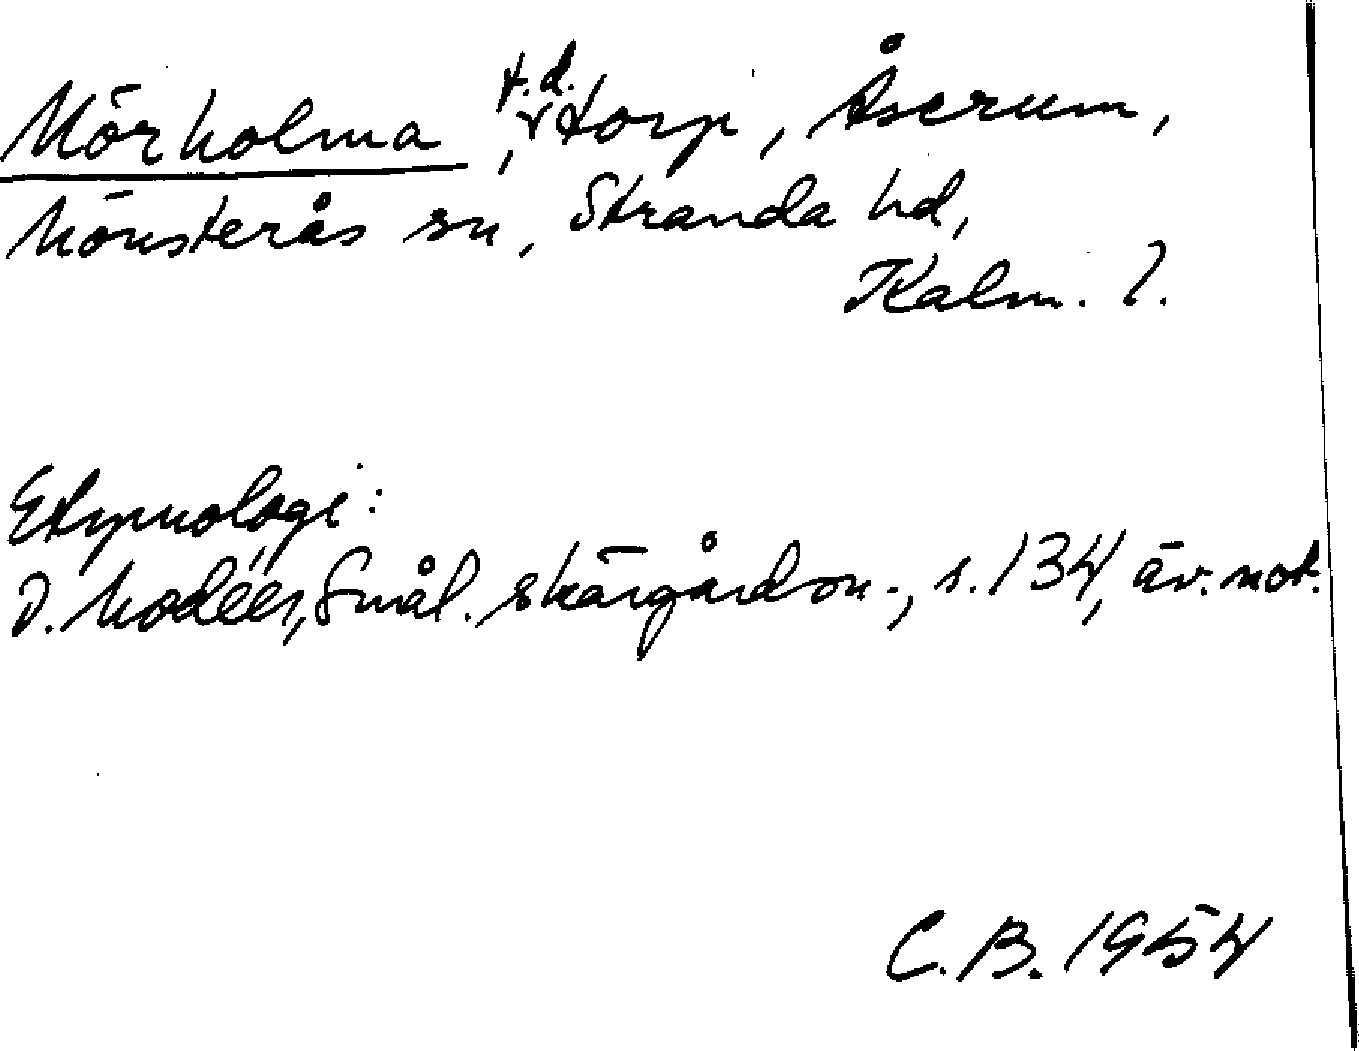 Mörholma, f.d. torp, Åserum,
Mönsterås sn, Stranda hd,
Kalm. l.
Etymologi:
I. Modéer, Smål. skärgårdsn., s. 134, äv. not.
C.B. 1954